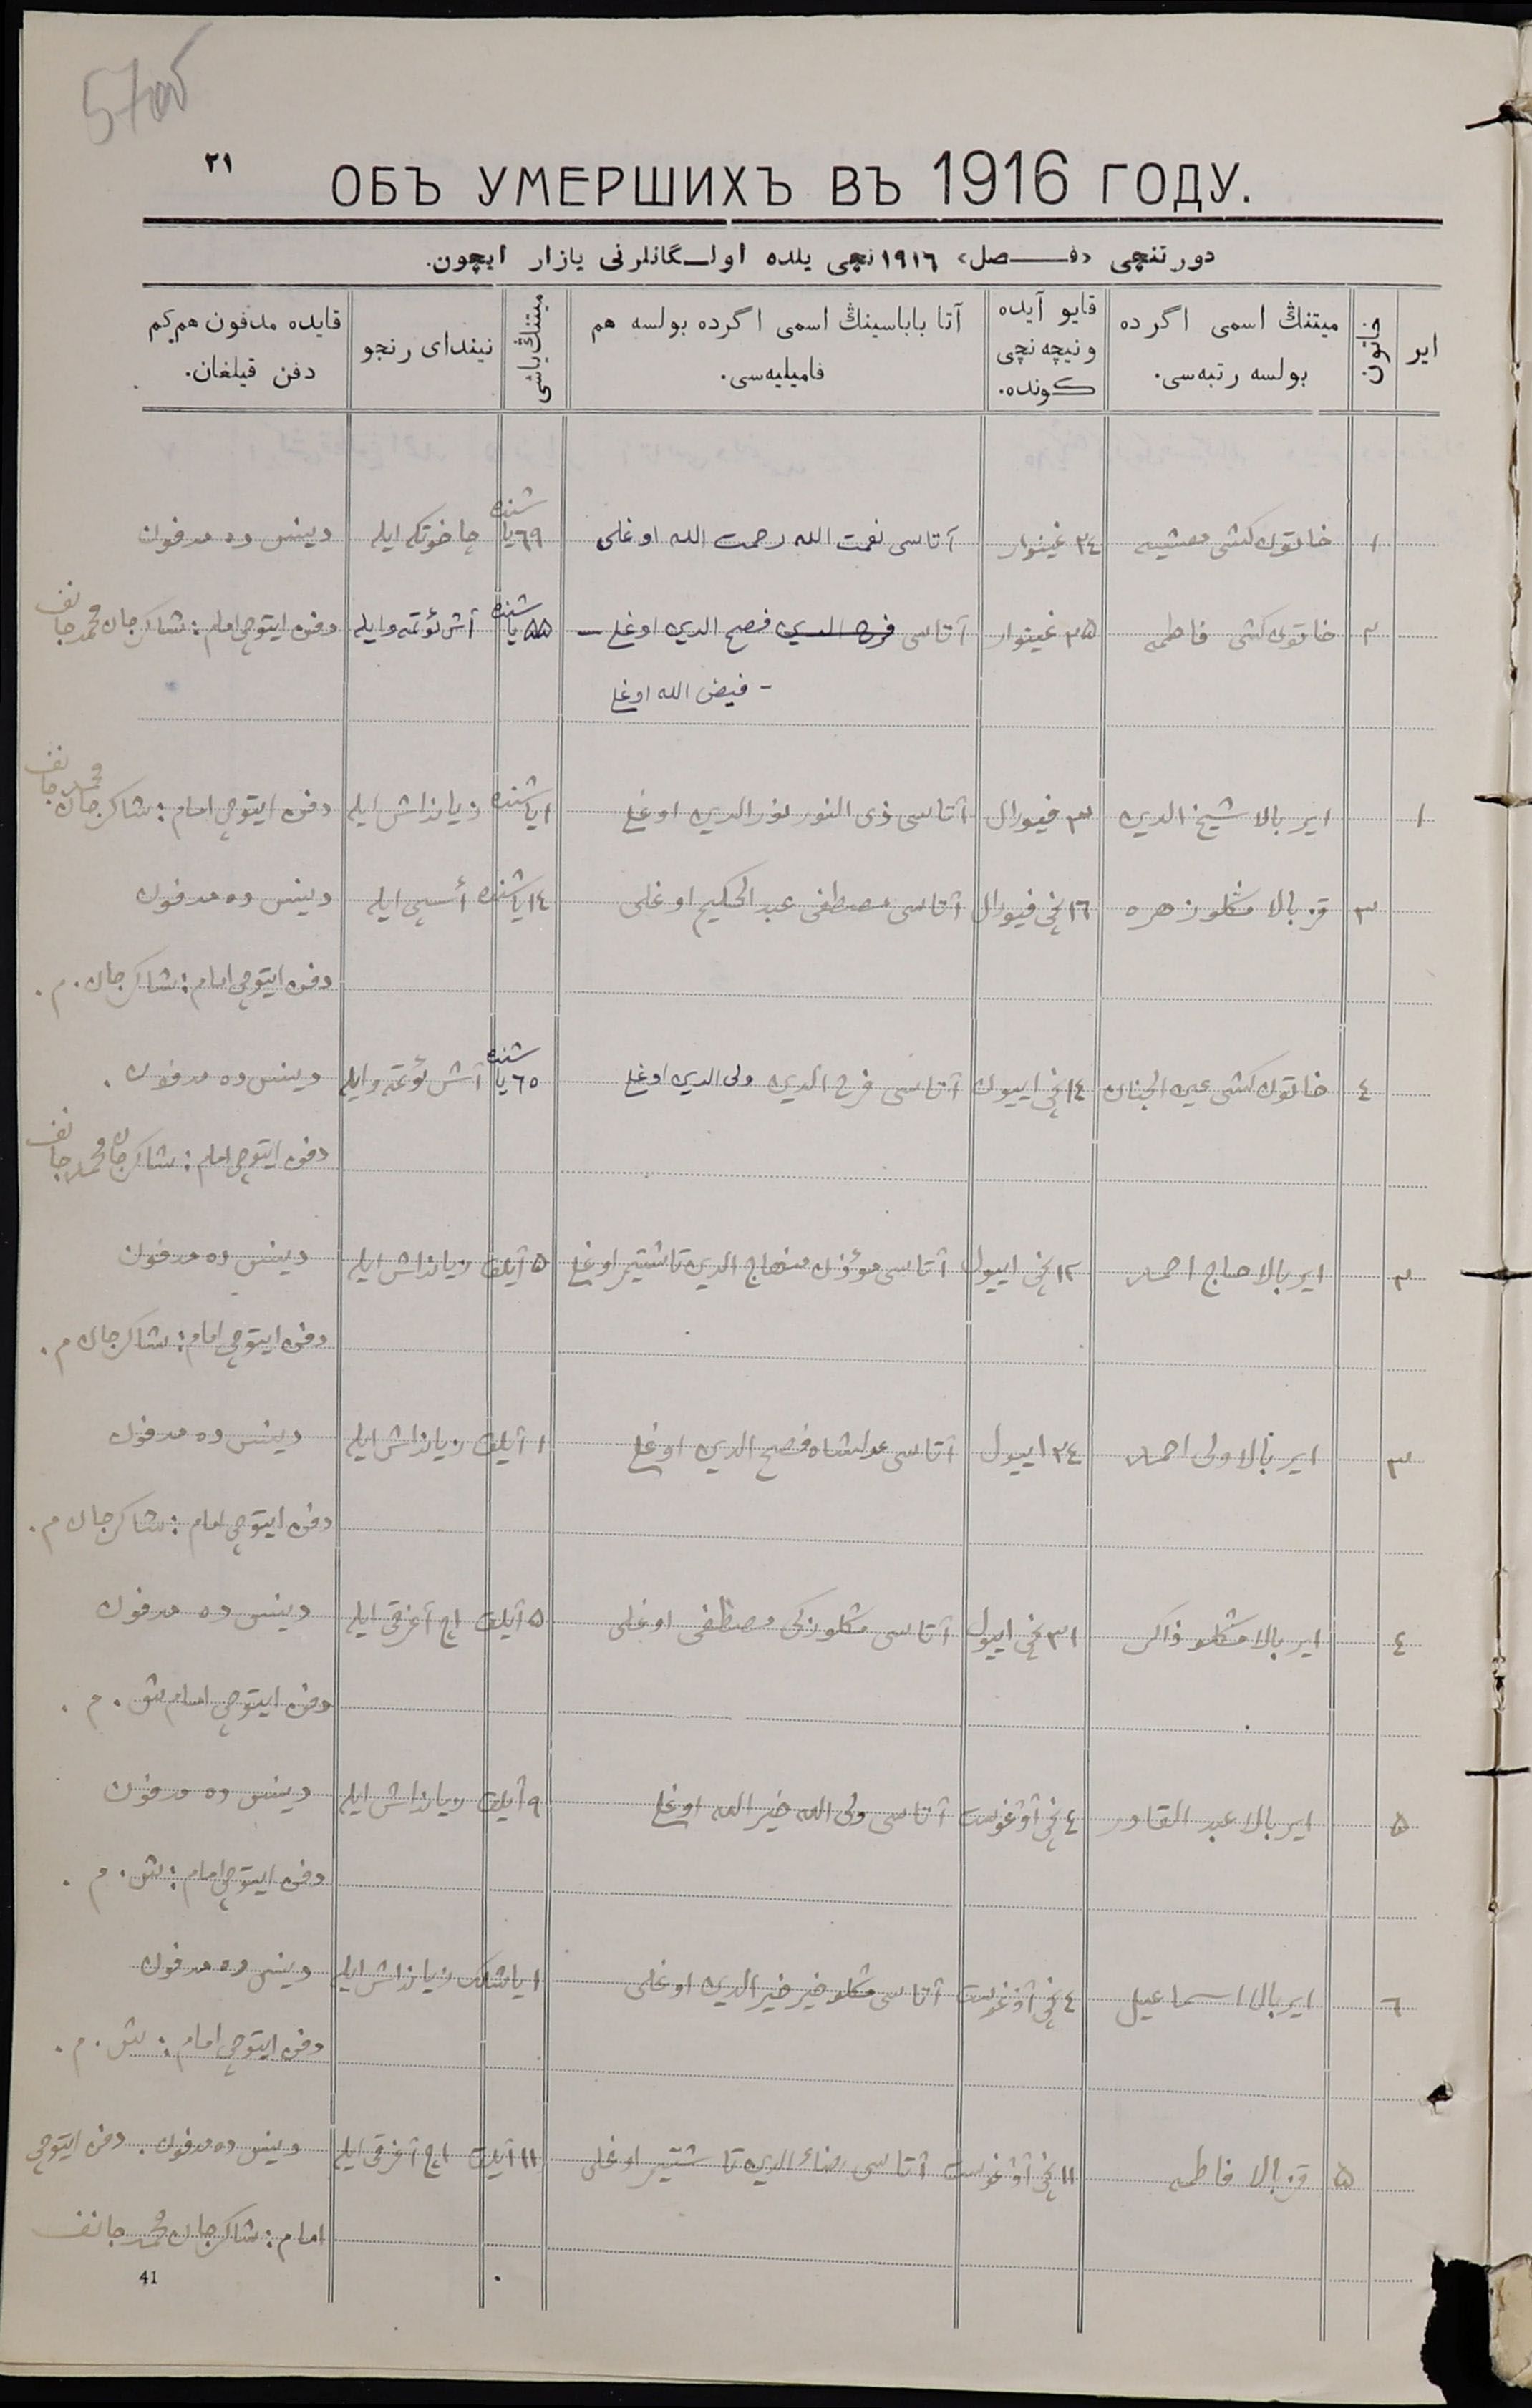 ٢١
ОБЪ УМЕРШИХЪ ВЪ 1916 ГОДУ.
دورتنچی «فـــصل» ١٩١٦ نچی یلده اولـگانلرنی یازار ایچون.
ایر
خاتون
میتنڭ اسمی اگرده بولسه رتبه‌سی.
قایو آیده ونیچه نچی كونده.
آتا باباسینڭ اسمی اگرده بولسه هم فامیلیه‌سی.
میتنڭ یاشی
نیندای رنجو
قایده مدفون هم كم دفن قیلغان.
١ خاتون كشی ٢٤ غینوار آتاسی نعمت الله رحمت الله اوغلی ٦٩ یاشنده چاخوتكه ایله دینس ده مدفون
٢ خاتون كشی فاطمه ٢٥ غینوار آتاسی فصح الدین اوغلی ٥٥ یاشنده دفن ایتوچی امام: شاكرجان محمدجانف
- فیض الله اوغلی
١ ایر بالا شیخ الدین ٣ فیورال آتاسی ذی النور نور الدین اوغلی ١ یاشنده زیانداش ایله دفن ایتوچی امام: شاكرجان محمدجانف
٣ قز بالا مشكلو زهره ١٦ نچی فیورال آتاسی مصطفی عبد الحكیم اوغلی ١٤ یاشنده ایله دینس ده مدفون
دفن ایتوچی امام: شاكرجان. م.
٤ خاتون كشی عین الجنان ١٤ نچی اییون آتاسی فرح الدین ولی الدین اوغلی ٦٥ یاشنده دینس ده مدفون.
دفن ایتوچی امام: شاكرجان محمدجانف
٢ ایر بالا حاج احمد ١٢ نچی اییول آتاسی مؤذن منهاج الدین تاشتیمر اوغلی ٥ آیلق زیانداش ایله دینس ده مدفون
دفن ایتوچی امام: شاكرجان م.
٣ ایر بالا ولی احمد ٢٤ اییول آتاسی فصح الدین اوغلی ١ آیلق زیانداش ایله دینس ده مدفون
دفن ایتوچی امام: شاكرجان م.
٤ ایر بالا مشكلو ذاكر ٣١ نچی اییول آتاسی مشكلو زكی مصطفی اوغلی ٥ آیلق اچ آغرقی ایله دینس ده مدفون
دفن ایتوچی امام ش. م.
٥ ایر بالا عبد القادر ٤ نچی آوغوست آتاسی ولی الله خیر الله اوغلی ٩ آیلق زیانداش ایله دینس ده مدفون
دفن ایتوچی امام: ش. م.
٦ ایر بالا اسماعیل ٤ نچی آوغوست آتاسی مشكلو خیر خیر الدین اوغلی ١ یاشلك زیانداش ایله دینس ده مدفون
دفن ایتوچی امام: ش. م.
٥ قز بالا فاطمه ١١ نچی آوغوست آتاسی ضیاء الدین تاشتیمر اوغلی ١١ آیلق اچ آغرقی ایله دینس ده مدفون. دفن ایتوچی
امام: شاكرجان محمدجانف
41